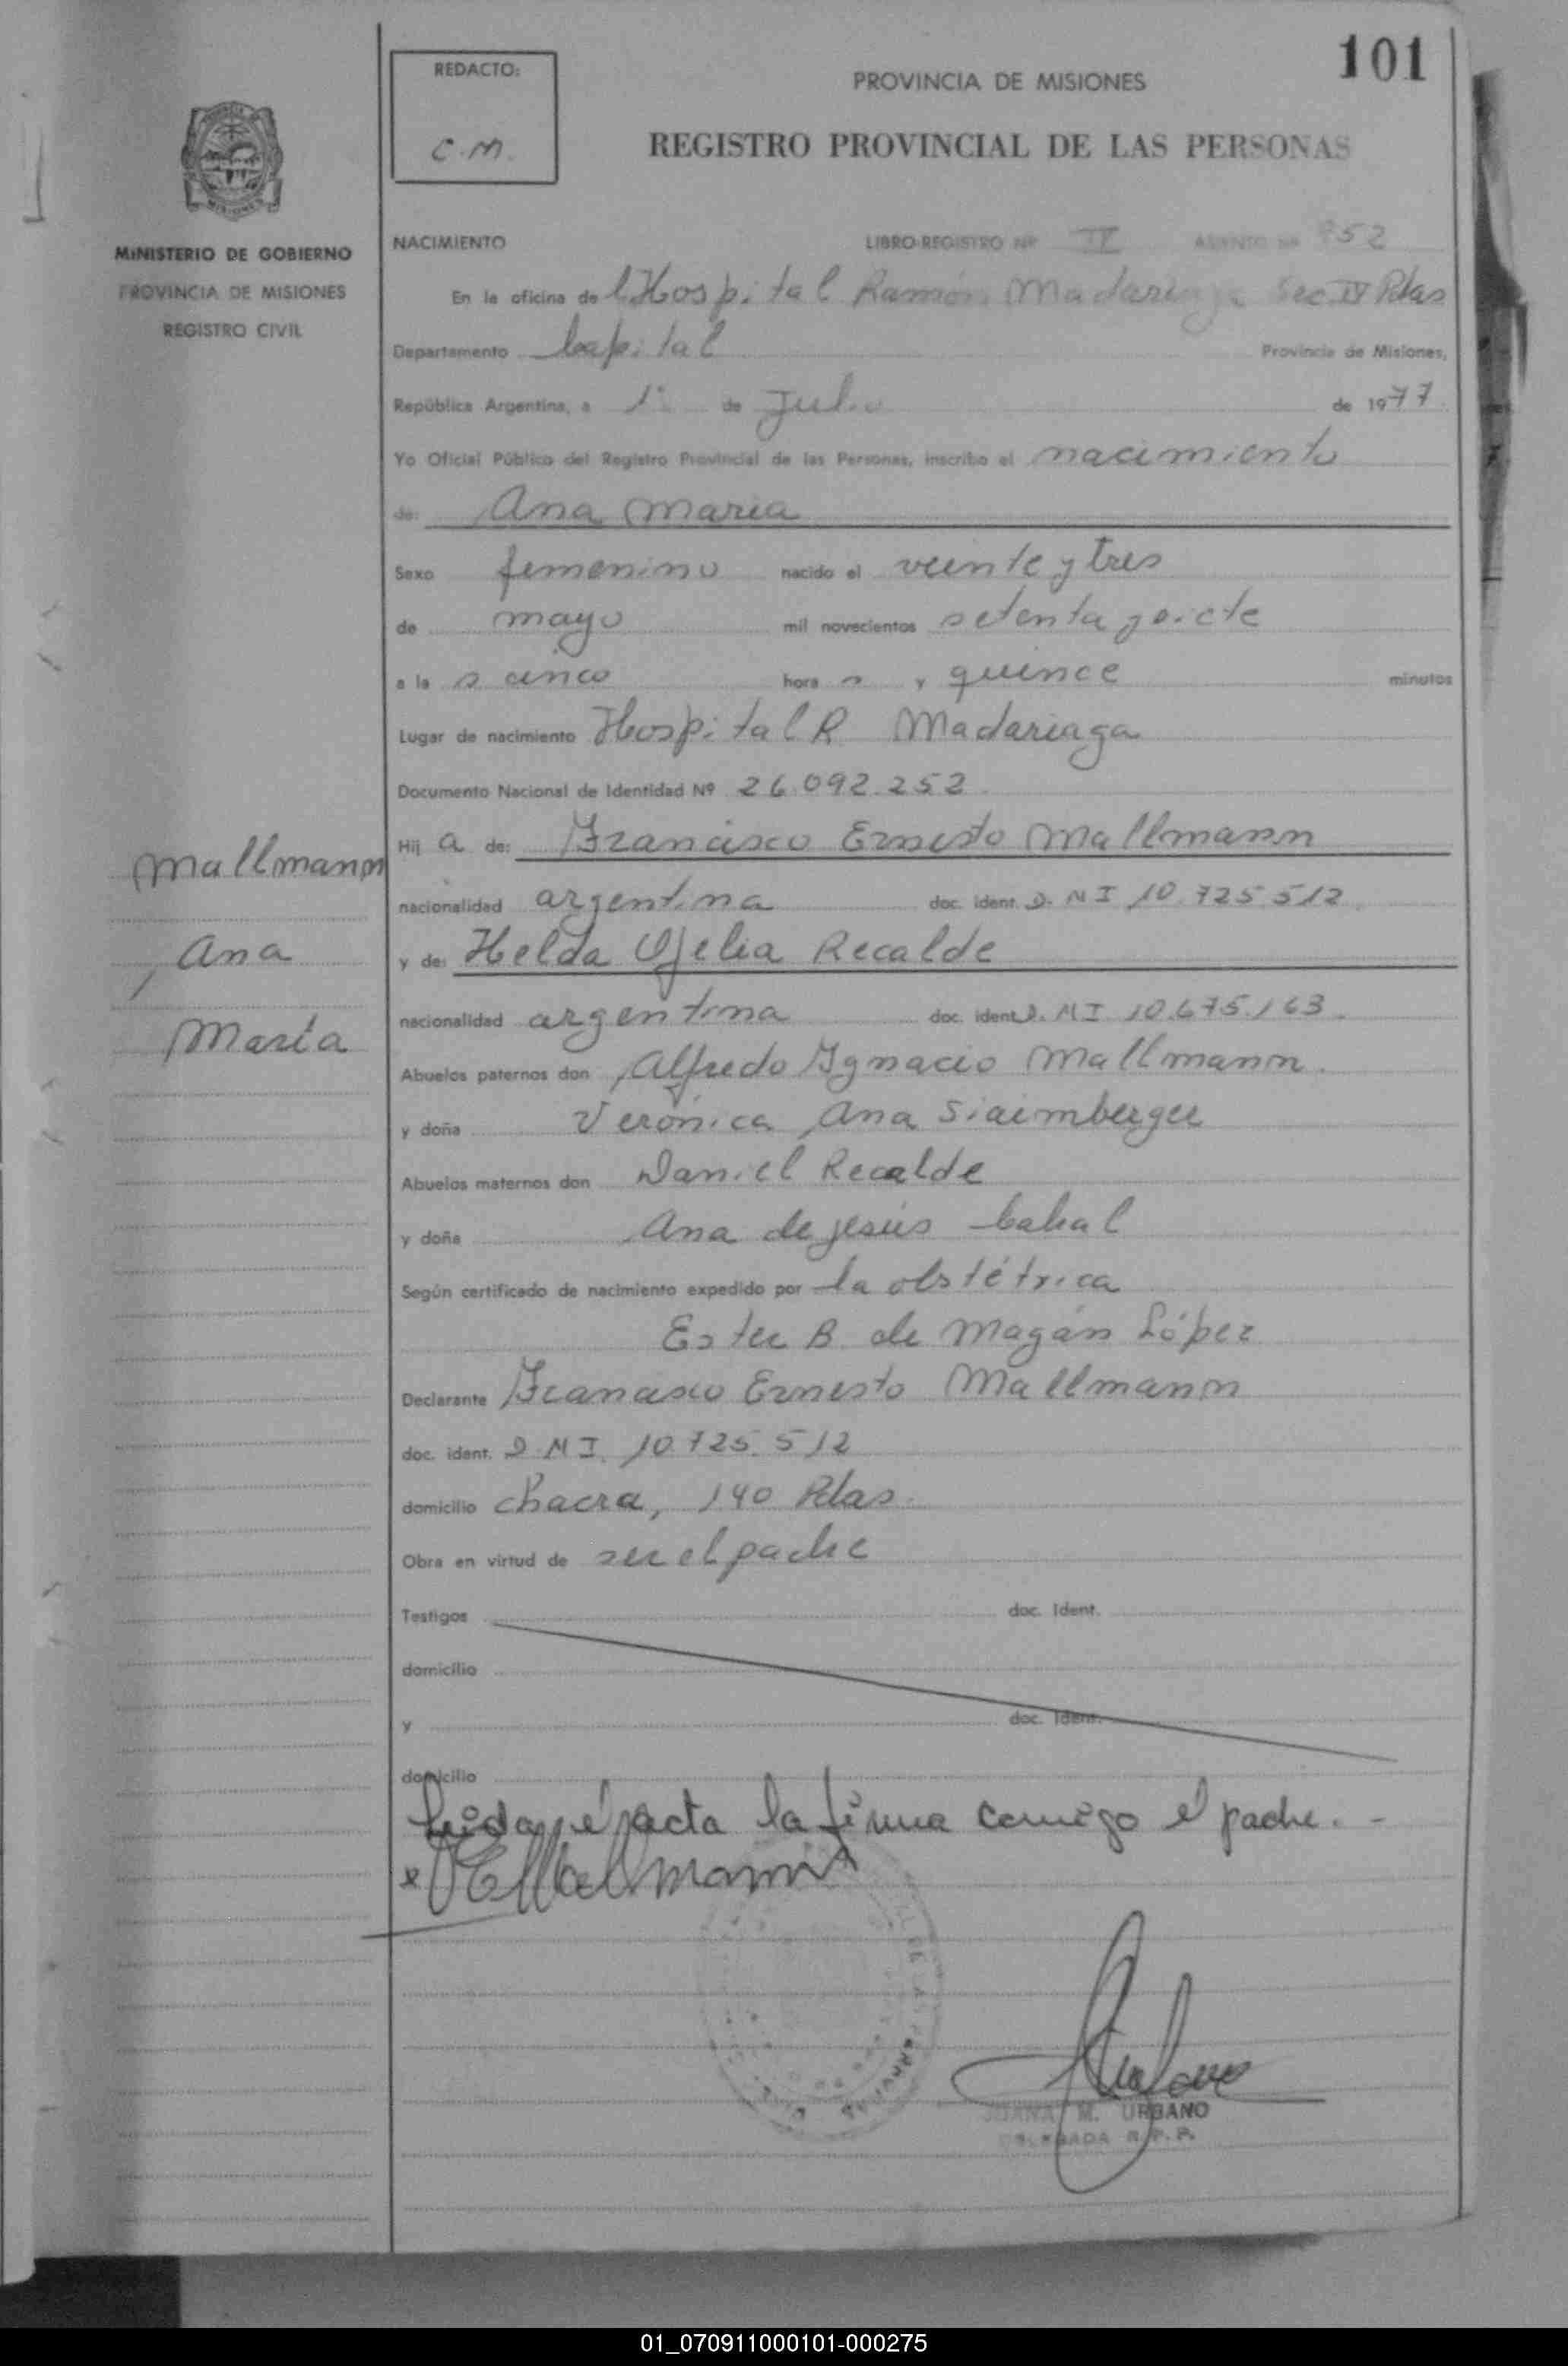 101
REDACTO:
C.M.
PROVINCIA DE MISIONES
REGISTRO PROVINCIAL DE LAS PERSONAS
MINISTERIO DE GOBIERNO
PROVINCIA DE MISIONES
REGISTRO CIVIL
NACIMIENTO LIBRO-REGISTRO Nº IV ASIENTO Nº 952
En la oficina del Hospital Ramón Madariaga Sec. IV Pdas
Departamento Capital Provincia de Misiones,
República Argentina, a 1º de Julio de 1977.
Yo Oficial Público del Registro Provincial de las Personas, inscribo el nacimiento
de: Ana Maria
Sexo femenino nacido el veinte y tres
de mayo mil novecientos setenta y siete
a las cinco horas y quince minutos
Lugar de nacimiento Hospital R. Madariaga
Documento Nacional de Identidad Nº 26.092.252
Hija de: Francisco Ernesto Mallmann
nacionalidad argentina doc. ident. D.N.I. 10.725.512.
y de: Helda Ofelia Recalde
nacionalidad argentina doc. ident. D.N.I. 10.675.163.
Mallmann
Ana
María
Abuelos paternos don Alfredo Ygnacio Mallmann.
y doña Verónica Ana
Abuelos maternos don Daniel Recalde
y doña Ana de Jesús Cabral
Según certificado de nacimiento expedido por la obstétrica
Ester B. de Magán López
Declarante Francisco Ernesto Mallmann
doc. ident. D.N.I. 10.725.512
domicilio chacra, 140 Pdas.
Obra en virtud de ser el padre
Testigos doc. Ident.
domicilio
y doc. Ident.
domicilio
Leida el acta la firma conmigo el padre. -
Mallmann
JUANA M. URBANO
DELEGADA R.P.P.
01_070911000101-000275